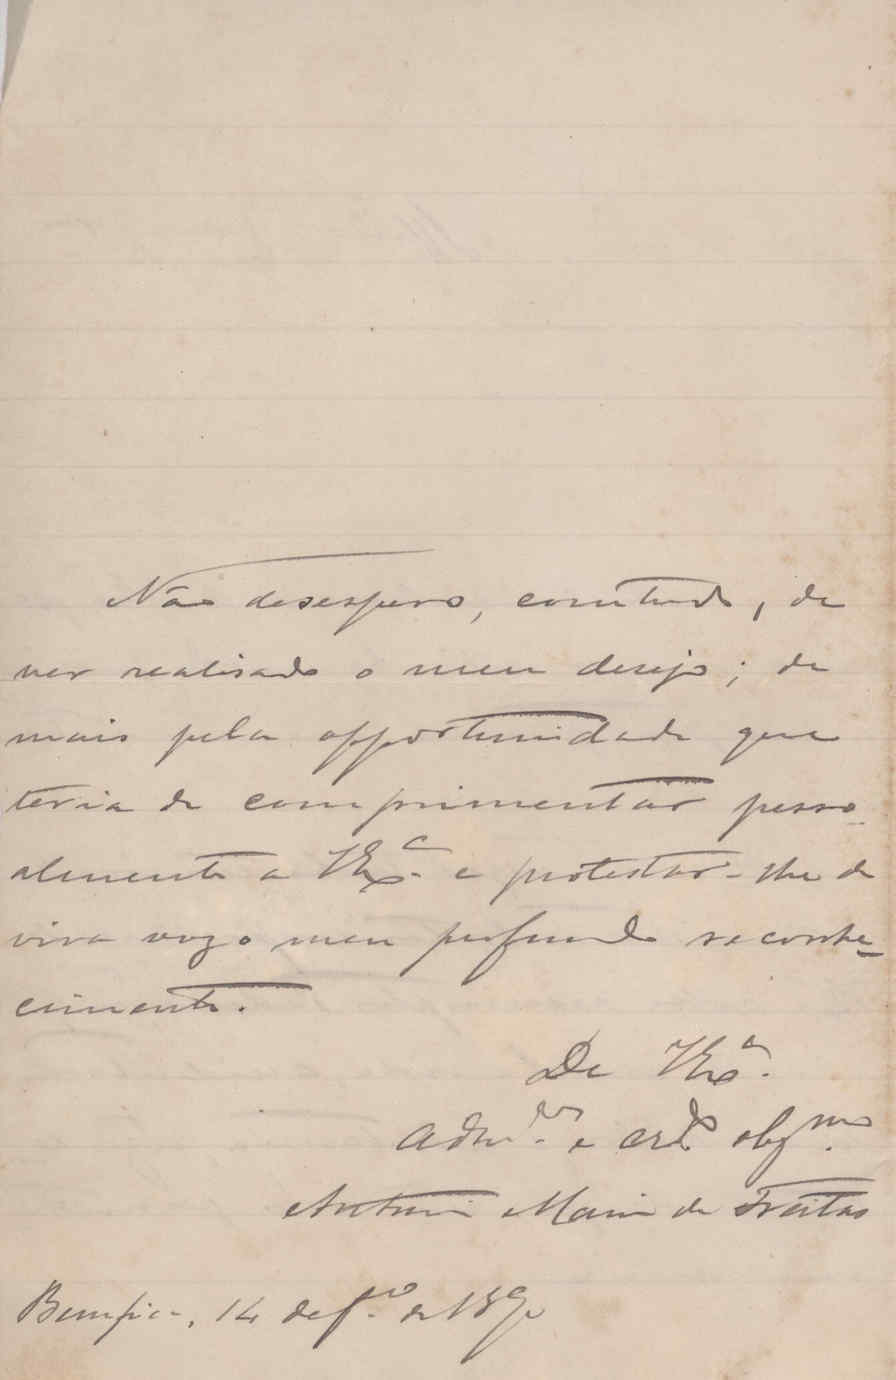 Não desespero, comtudo, de
ver realisado o meu desejo; de
mais pela opportunidade que
teria de comprimentar pesso-
almente a VExª. e protestar-lhe de
viva voz o meu profundo reconhe-
cimento.
De VExª.
Admºʳ. e crº obgᵐº.
Antonio Maria de Freitas
Bemfica, 14 de f.º de 189